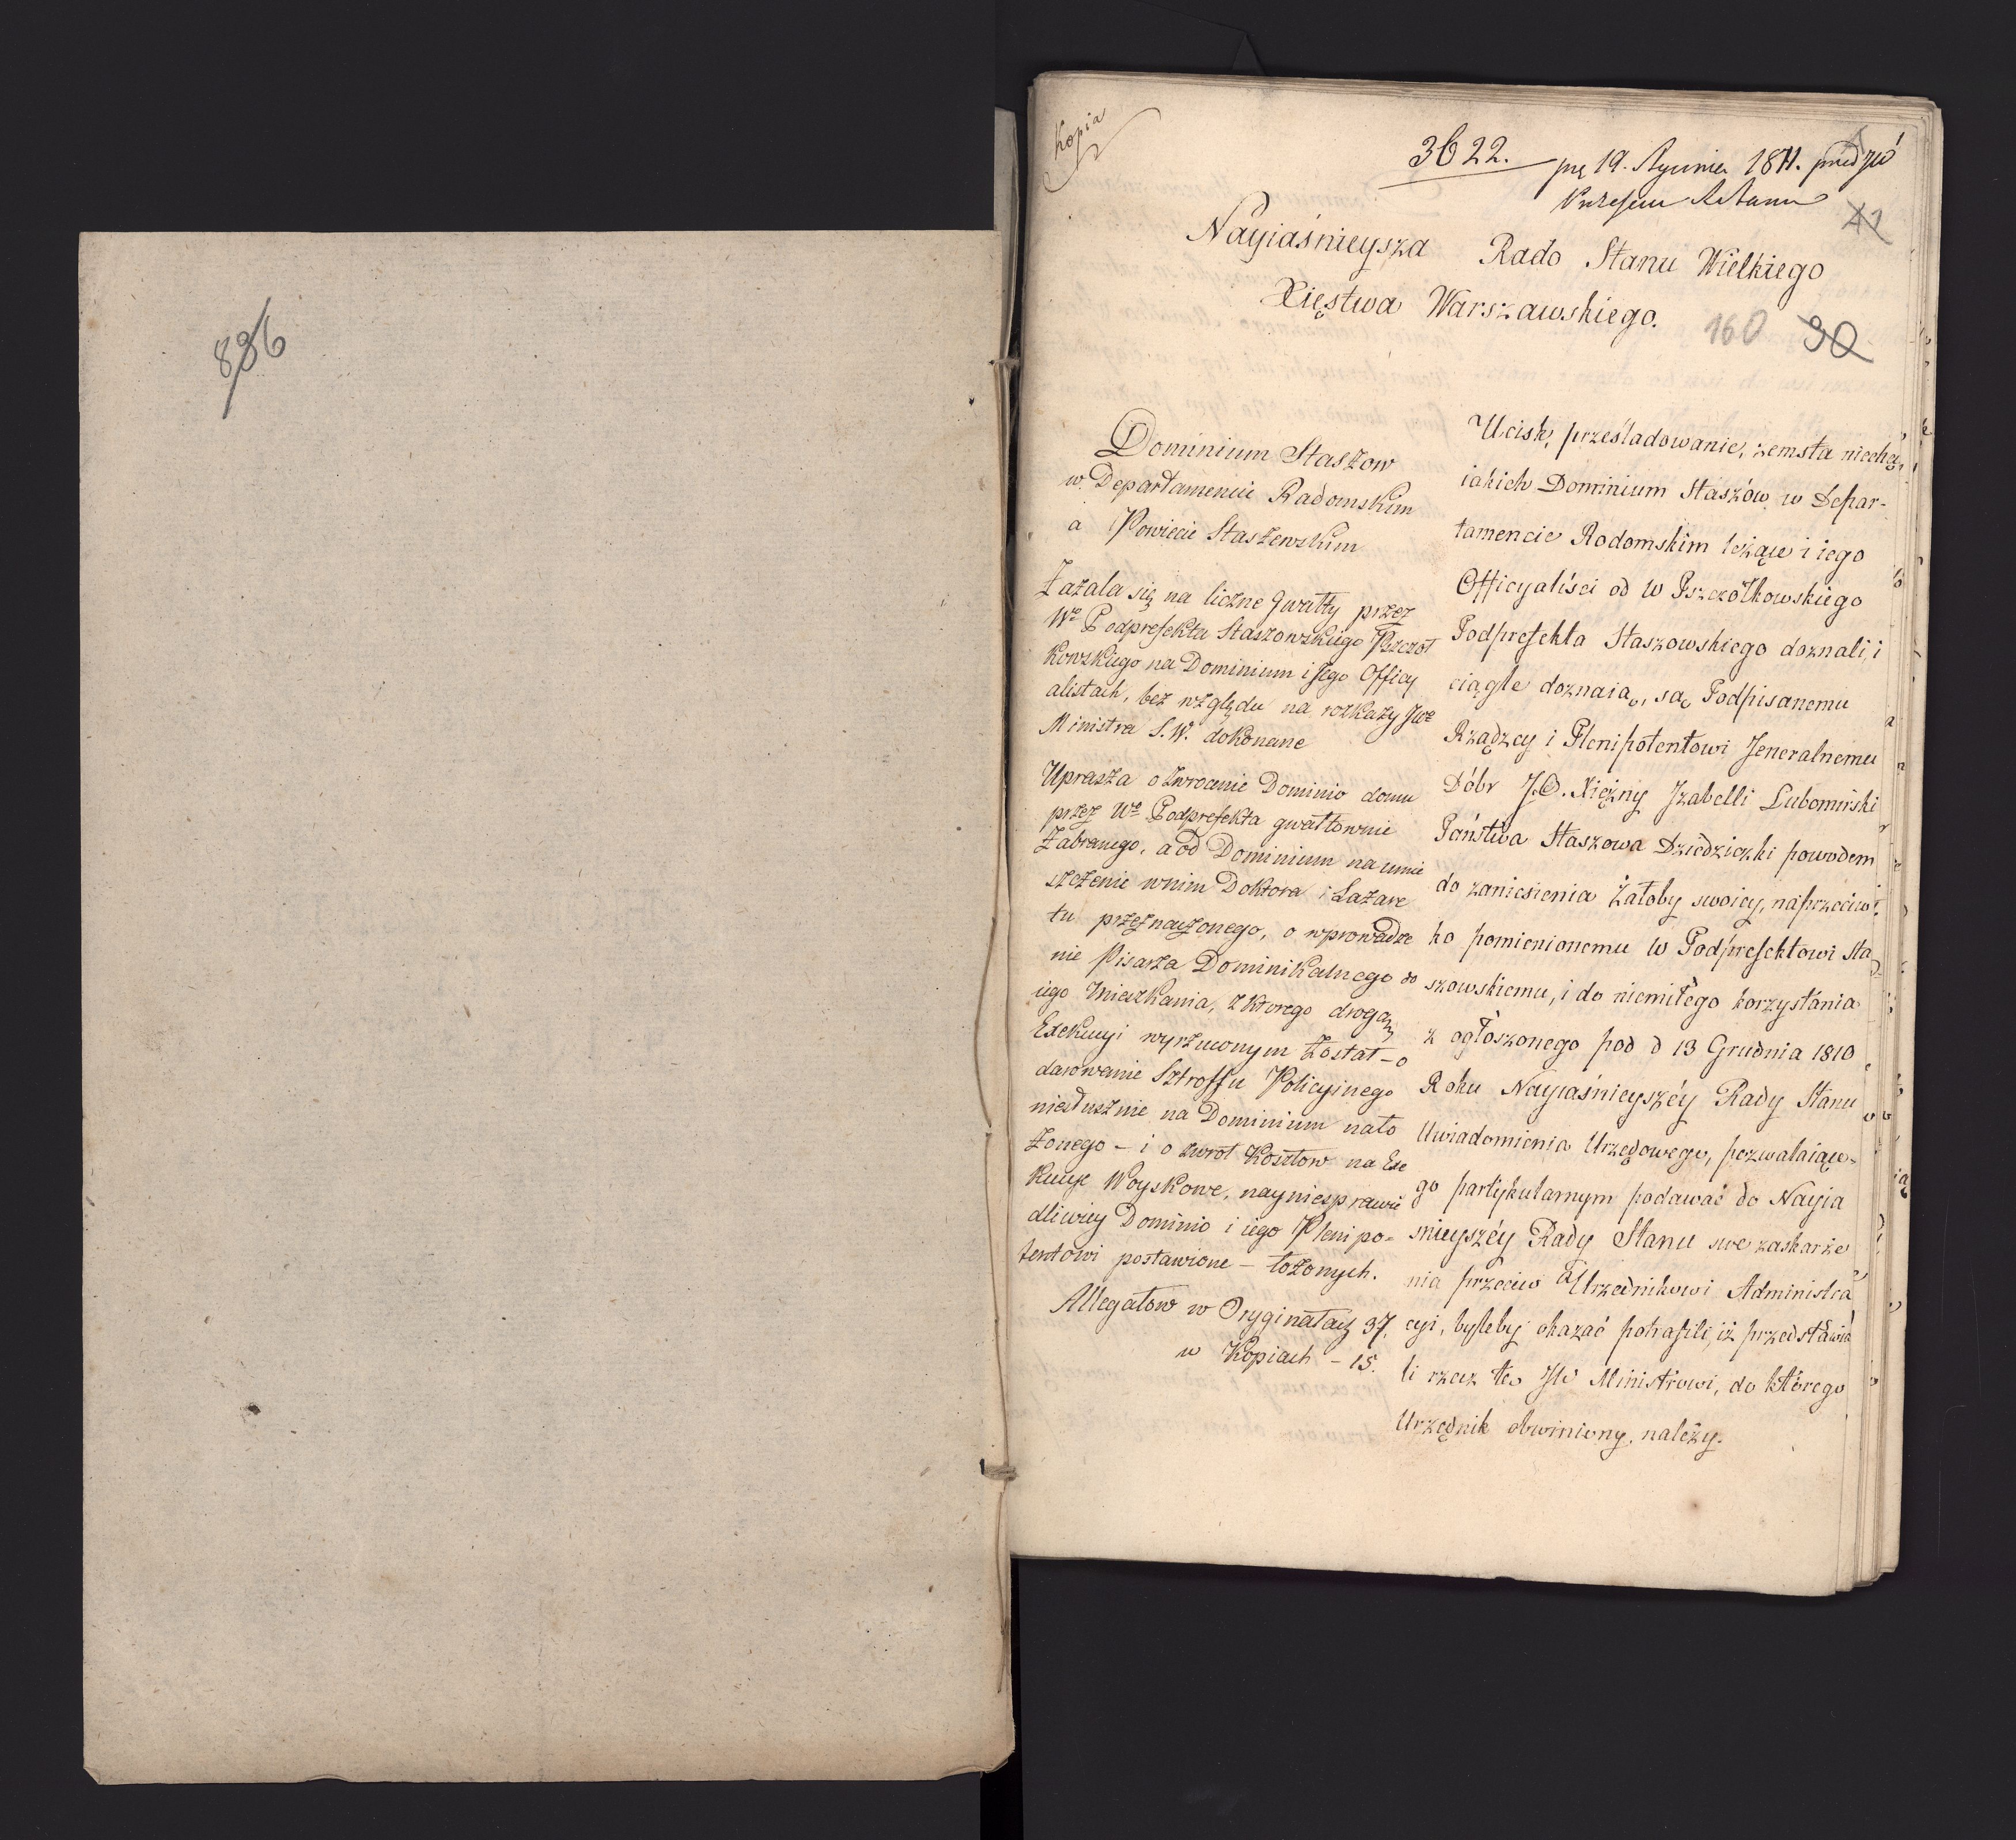 836
Kopia
3622.
19. Stycznia 1811.
41
Nayiaśnieysza Rado Stanu Wielkiego
Xięstwa Warszawskiego.
160 90
Dominium Staszow
w Departamencie Radomskim
a Powiecie Staszewskim
Zażala się na liczne gwałty przez
Wo Podprefekta Staszowskiego Pszczoł
kowskiego na Dominium i Jego Officy
alistach, bez względu na rozkazy JWo
Ministra S. W. dokonane
Uprasza o zwrocenie Dominio domu
przez Wo Podprefekta gwałtownie
Zabranego, a od Dominium na umie
szczenie w nim Doktora i Lazare
tu przeznaczonego, o wprowadze
nie Pisarza Dominikalnego do
iego Mieszkania, z ktorego drogą
Exekucyi wyrzuconym został - o
darowanie Sztroffu Policyinego
niesłusznie na Dominium nało
żonego - i o zwrot Kosztow na Exe
kucye Woyskowe, nayniesprawie
dliwiey Dominio i iego Plenipo=
tentowi postawione - łożonych.
Allegatow w Oryginałach 37.
w Kopiach - 15.
Ucisk, prześladowanie, zemsta niechęć,
iakich Dominium Staszów w Depar-
tamencie Radomskim leżące i iego
Officyaliści od W Pszczółkowskiego
Podprefekta Staszowskiego doznali, i
ciągle doznaią, są Podpisanemu
Rządzcy i Plenipotentowi Jeneralnemu
Dóbr J.O. Xiężny Izabelli Lubomirski
Państwa Staszowa Dziedziczki powodem
do zaniesienia Żałoby swoiey, naprzeciw
ko pomienionemu W Podprefektowi Sta
szowskiemu, i do niemiłego korzystania
z ogłoszonego pod d 13 Grudnia 1810
Roku Nayiaśnieyszéy Rady Stanu
Uwiadomienia Urzędowego, pozwalaiące=
go partykularnym podawać do Nayia
śnieyszéy Rady Stanu swe zaskarże
nia przeciw Urzędnikowi Administra
cyi, byleby okazać potrafili, iż przedstawia
li rzecz tę JW Ministrowi, do którego
Urzędnik obwiniony, należy.